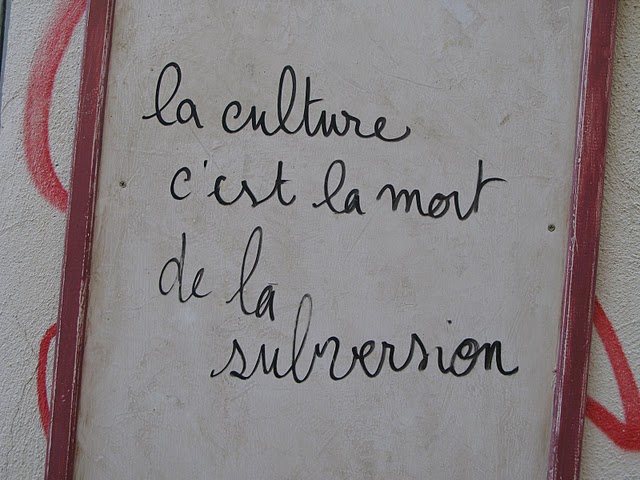 la culture
c'est la mort
de la
subversion